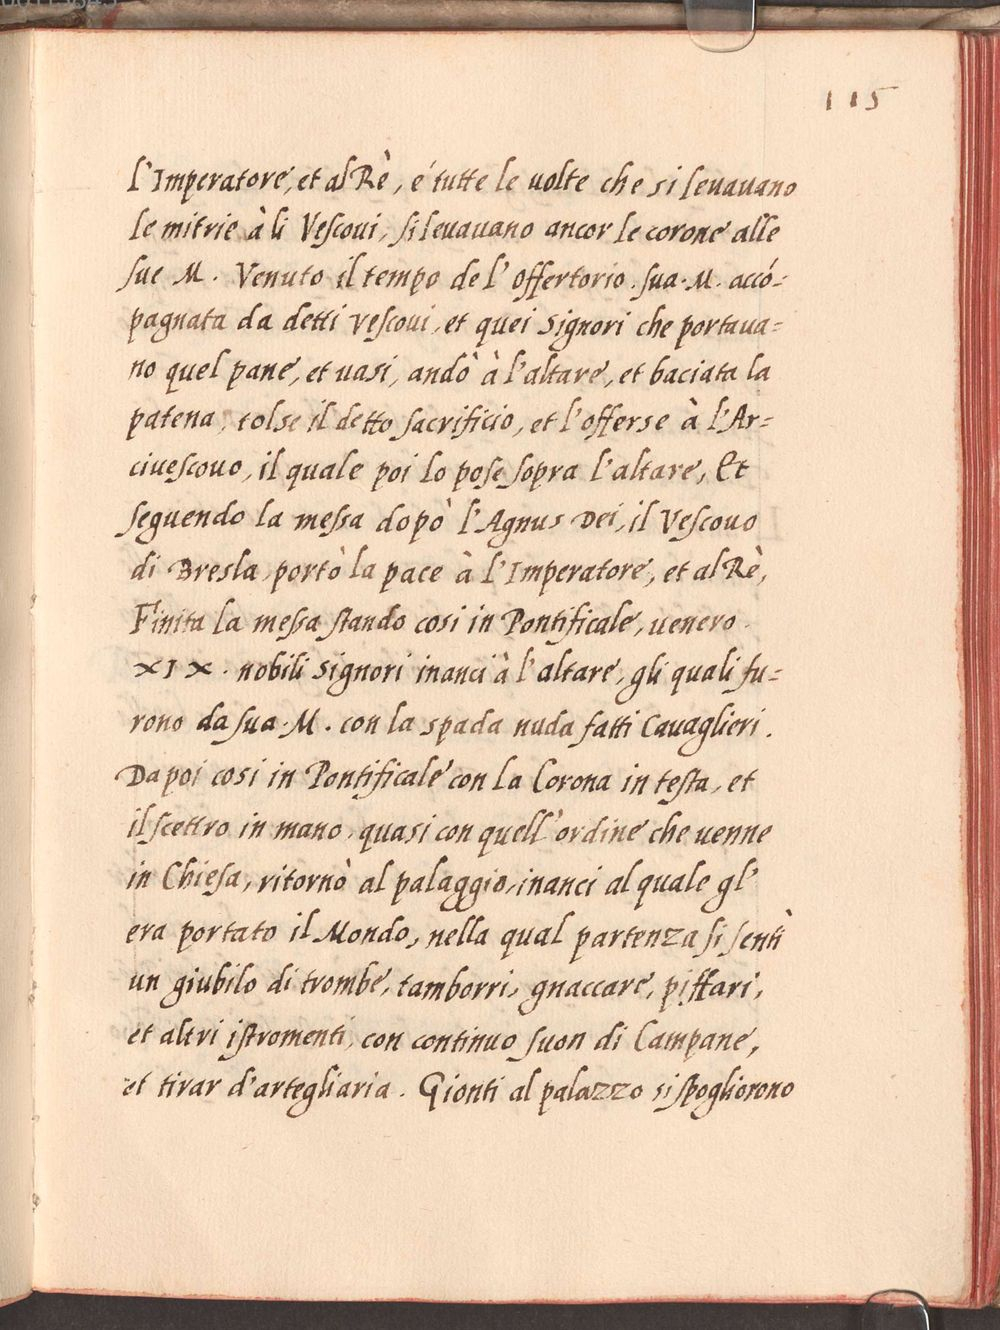 115
l'Imperatore, et al Rè, é tutte le uolte che si leuauano
le mitrie à li Vescoui, si leuauano ancor le corone alle
sue M. Venuto il tempo de l'offertorio. sua. M. accó-
pagnata da detti vescoui, et quei signori che portaua=
no quel pane, et uasi, andò à l'altare, et baciata la
patena, tolse il detto sacrificio, et l'offerse à l'Ar=
ciuescouo, il quale poi lo pose sopra l'altare, Et
seguendo la messa dopò l'Agnus Dei, il Vescouo
di Bresla, portò la pace à l'Imperatore, et al Rè,
Finita la messa stando cosi in Pontificale, uenero
XIX. nobili signori inanci à l'altare, gli quali fu=
rono da sua. M. con la spada nuda fatti Cauaglieri.
Da poi cosi in Pontificale con la Corona in testa, et
il scettro in mano, quasi con quell'ordine che uenne
in Chiesa, ritornò al palaggio, inanci al quale gl'
era portato il Mondo, nella qual partenza si sentì
un giubilo di trombe, tamborri, gnaccare, piffari,
et altri istromenti, con continuo suon di Campane,
et tirar d'artegliaria. Gionti al palazzo si spogliorono